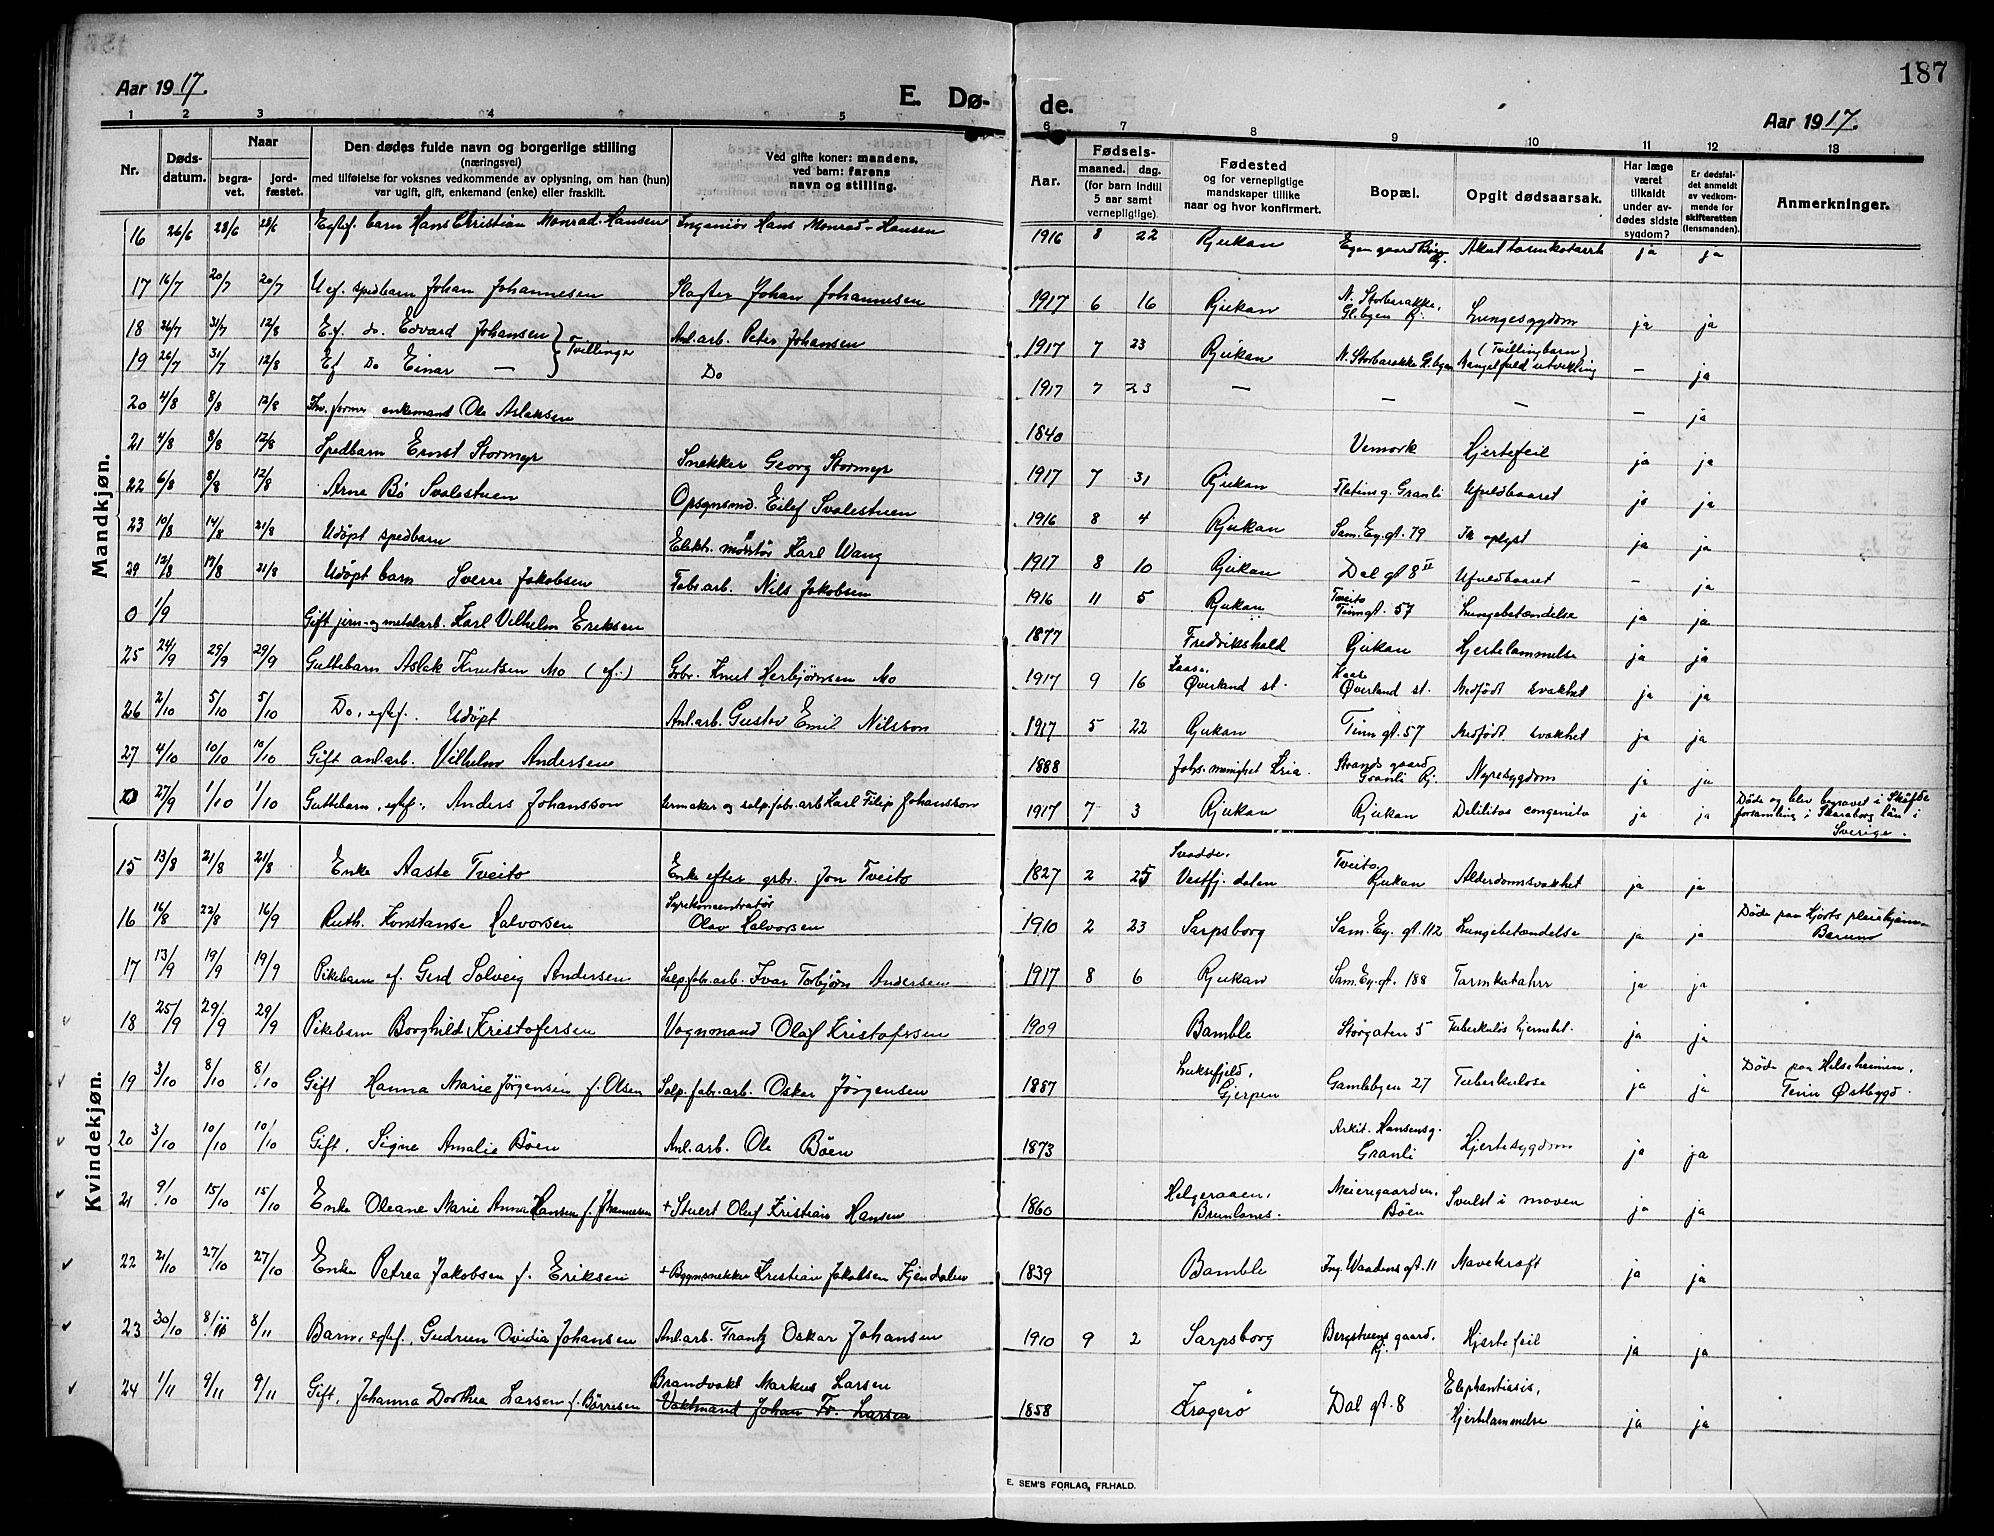 187
Aar 1917.
E. Dø-
de.
Aar 1917.
1 2 3 4 5 6 7 8 9 10 11 12 13
Nr.
Døds-
datum.
Naar
begra-
vet.
jord-
fæstet.
Den dødes fulde navn og borgerlige stilling
(næringsvei)
med tilføielse for voksnes vedkommende av oplysning, om han (hun)
var ugift, gift, enkemand (enke) eller fraskilt.
Ved gifte koner: mandens,
ved barn: farens
navn og stilling.
Aar.
Fødsels-
maaned. dag.
(for barn indtil
5 aar samt
vernepligtige).
Fødested
og for vernepligtige
mandskaper tillike
naar og hvor konfirmert.
Bopæl.
Opgit dødsaarsak.
Har læge
været
tilkaldt
under av-
dødes sidste
sygdom?
Er dødsfal-
det anmeldt
av vedkom-
mende for
skifteretten
(lensmanden).
Anmerkninger.
Mandkjøn.
16 26/6 28/6 28/6 Egtef. barn Hans Christian Monrad-Hansen Ingeniør Hans Monrad-Hansen 1916 8 22 Rjukan Egen gaard Akut tarmkatarrh ja ja
17 16/7 20/7 20/7 Uef. spedbarn Johan Johannesen Slagter Johan Johannesen 1917 6 16 Rjukan N. Storbarakke, Gl.byen Rj. Lungesygdom ja ja
18 26/7 31/7 12/8 E.f. do. Edvard Johansen } Tvillinger Anl.arb. Peter Johansen 1917 7 23 Rjukan N. Storbarakke Gl.byen (Tvillingbarn) Mangelfuld utvikling — ja
19 26/7 31/7 12/8 Ef Do Einar — Do 1917 7 23 — — — — ja
20 4/8 8/8 12/8 Fhv. former enkemand Ole Aslaksen 1840 Vemork Hjertefeil ja ja
21 4/8 8/8 12/8 Spedbarn Ernst Stormyr Snekker Georg Stormyr 1917 7 31 Rjukan Flating. Granli Ufuldbaaret ja ja
22 6/8 8/8 12/8 Arne Bø Svalestuen Opsynsmd. Eilef Svalestuen 1916 8 4 Rjukan Sam. Ey. gt. 79 Ik oplyst ja ja
23 10/8 14/8 21/8 Udøpt spedbarn Elektr. montør Karl Wang 1917 8 10 Rjukan Dal gt 8 II Ufuldbaaret — ja
24 12/8 17/8 21/8 Udøpt barn Sverre Jakobsen Fabr.arb. Nils Jakobsen 1916 11 5 Rjukan Tveito Tinngt. 57 Lungebetændelse ja ja
0 1/9 Gift jern-og metalarb. Karl Vilhelm Eriksen 1877 Fredrikshald Rjukan Hjertelammelse ja ja
25 24/9 29/9 29/9 Guttebarn Aslak Knutsen Mo (ef.) Gbr. Knut Herbjørnsen Mo 1917 9 16 Kaasa, Øverland st. Kaasa Øverland st. Medfødt svakhet ja ja
26 2/10 5/10 5/10 Do, egtef. Udøpt Anl.arb. Gustav Emil Nilsson 1917 5 22 Rjukan Tinn gt. 57 Medfødt svakhet ja ja
27 4/10 10/10 10/10 Gift anl.arb. Vilhelm Andersen 1888 Johs. menighet Kria. Strands gaard Granli Rj. Nyresygdom ja ja
0 27/9 1/10 1/10 Guttebarn, egtef., Anders Johansson Karl Filip Johansson 1917 7 3 Rjukan Rjukan Debilitas congenita ja ja Døde og blev begravet i Skøfde forsamling i Skaraborg län i Sverige.
Kvindekjøn.
15 13/8 21/8 21/8 Enke Aaste Tveito Enke efter gbr. Jon Tveito 1827 2 25 Svadde, Vestfj. dalen Tveito, Rjukan Alderdomssvakhet ja ja
16 16/8 22/8 16/9 Ruth. Konstanse Halvorsen Syrekoncentratør Olav Halvorsen 1910 2 23 Sarpsborg Sam. Ey. gt. 112 Lungebetændelse ja ja Døde paa Hjorts pleiehjem Bærum
17 13/9 19/9 19/9 Pikebarn ef. Gerd Solveig Andersen Salp.fabr.arb. Ivar Torbjørn Andersen 1917 8 6 Rjukan Sam. Ey. gt. 188 Tarmkatahrr ja ja
18 25/9 29/9 29/9 Pikebarn Borghild Kristofersen Vognmand Olaf Kristofssen 1909 Bamble Storgaten 5 Tuberkuløs hjernebet. ja ja
19 3/10 8/10 8/10 Gift Hanna Marie Jørgensen f. Olsen Salp.fabr.arb. Oskar Jørgensen 1887 Luksefjeld, Gjerpen Gamlebyen 27 Tuberkulose ja ja Døde paa Helseheimen, Tinn Østbygd.
20 3/10 10/10 10/10 Gift, Signe Amalie Bøen Anl.arb. Ole Bøen 1873 Arkit. Hansensg. Granli Hjertesygdom ja ja
21 9/10 15/10 15/10 Enke Oleane Marie Anna Hansen f. Johannesen + Stuert Oluf Kristian Hansen 1860 Helgeraaen, Brunlanes. Meierigaarden, Bøen Svulst i maven ja ja
22 21/10 27/10 27/10 Enke Petrea Jakobsen f. Eriksen + Bygnsnekker Kristian Jakobsen Kjendalen 1839 Bamble Ing. Waadens gt. 11 Mavekræft ja ja
23 30/10 8/11 8/11 Barn, egtef. Gudrun Ovidia Johansen Anl.arb. Frantz Oskar Johansen 1910 9 2 Sarpsborg Bergstuens gaard, Rj. Hjertefeil ja ja
24 1/11 9/11 9/11 Gift, Johanna Dorthea Larsen f. Børresen Brandvakt Markus Larsen Vaktmand Johan Fr. Larsen 1858 Kragerø Dal gt. 8 Elephantiasis, Hjertelammelse ja ja
E. SEM'S FORLAG, FR.HALD.